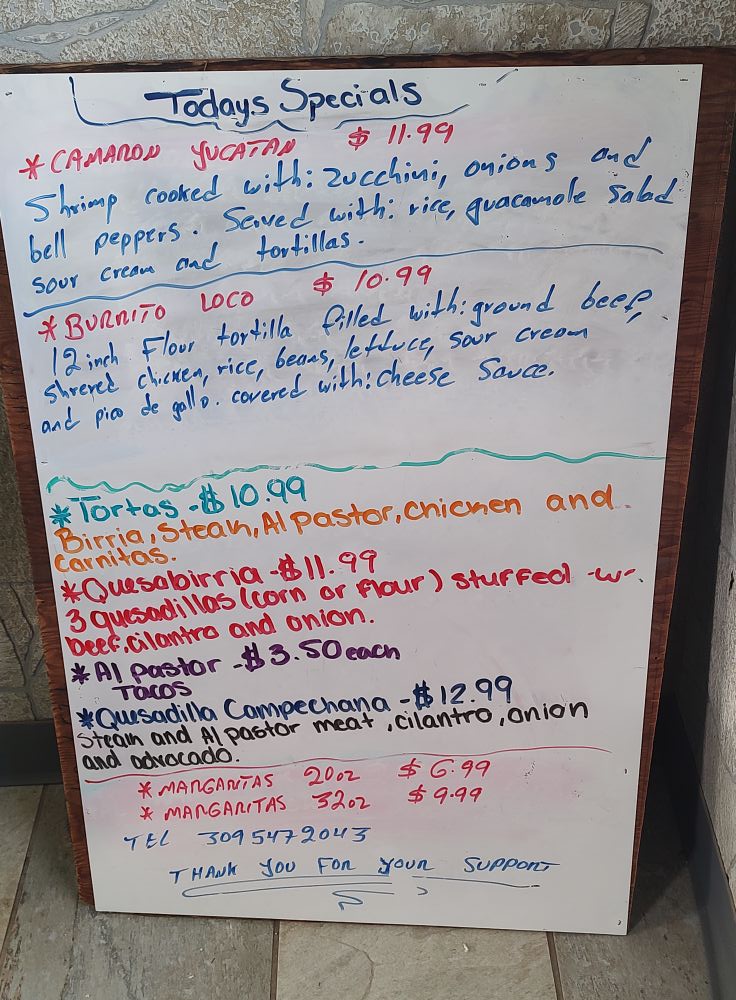 Todays Specials
* CAMARON YUCATAN $ 11.99
Shrimp cooked with: zucchini, onions and
bell peppers. Served with: rice, guacamole salad
sour cream and tortillas.
* BURRITO LOCO $ 10.99
12 inch Flour tortilla filled with: ground beef,
shrered chicken, rice, beans, lettuce, sour cream
and pico de gallo. covered with: cheese sauce.
* Tortas - $10.99
Birria, Steak, Al pastor, chicken and
Carnitas.
* Quesabirria - $11.99
3 quesadillas (corn or flour) stuffed -w-
beef, cilantro and onion.
* Al pastor - $3.50 each
Tacos
* Quesadilla Campechana - $12.99
Steak and Al pastor meat, cilantro, onion
and advocado.
* MARGARITAS 20oz $ 6.99
* MARGARITAS 32oz $ 9.99
TEL 3095472043
THANK YOU FOR YOUR SUPPORT